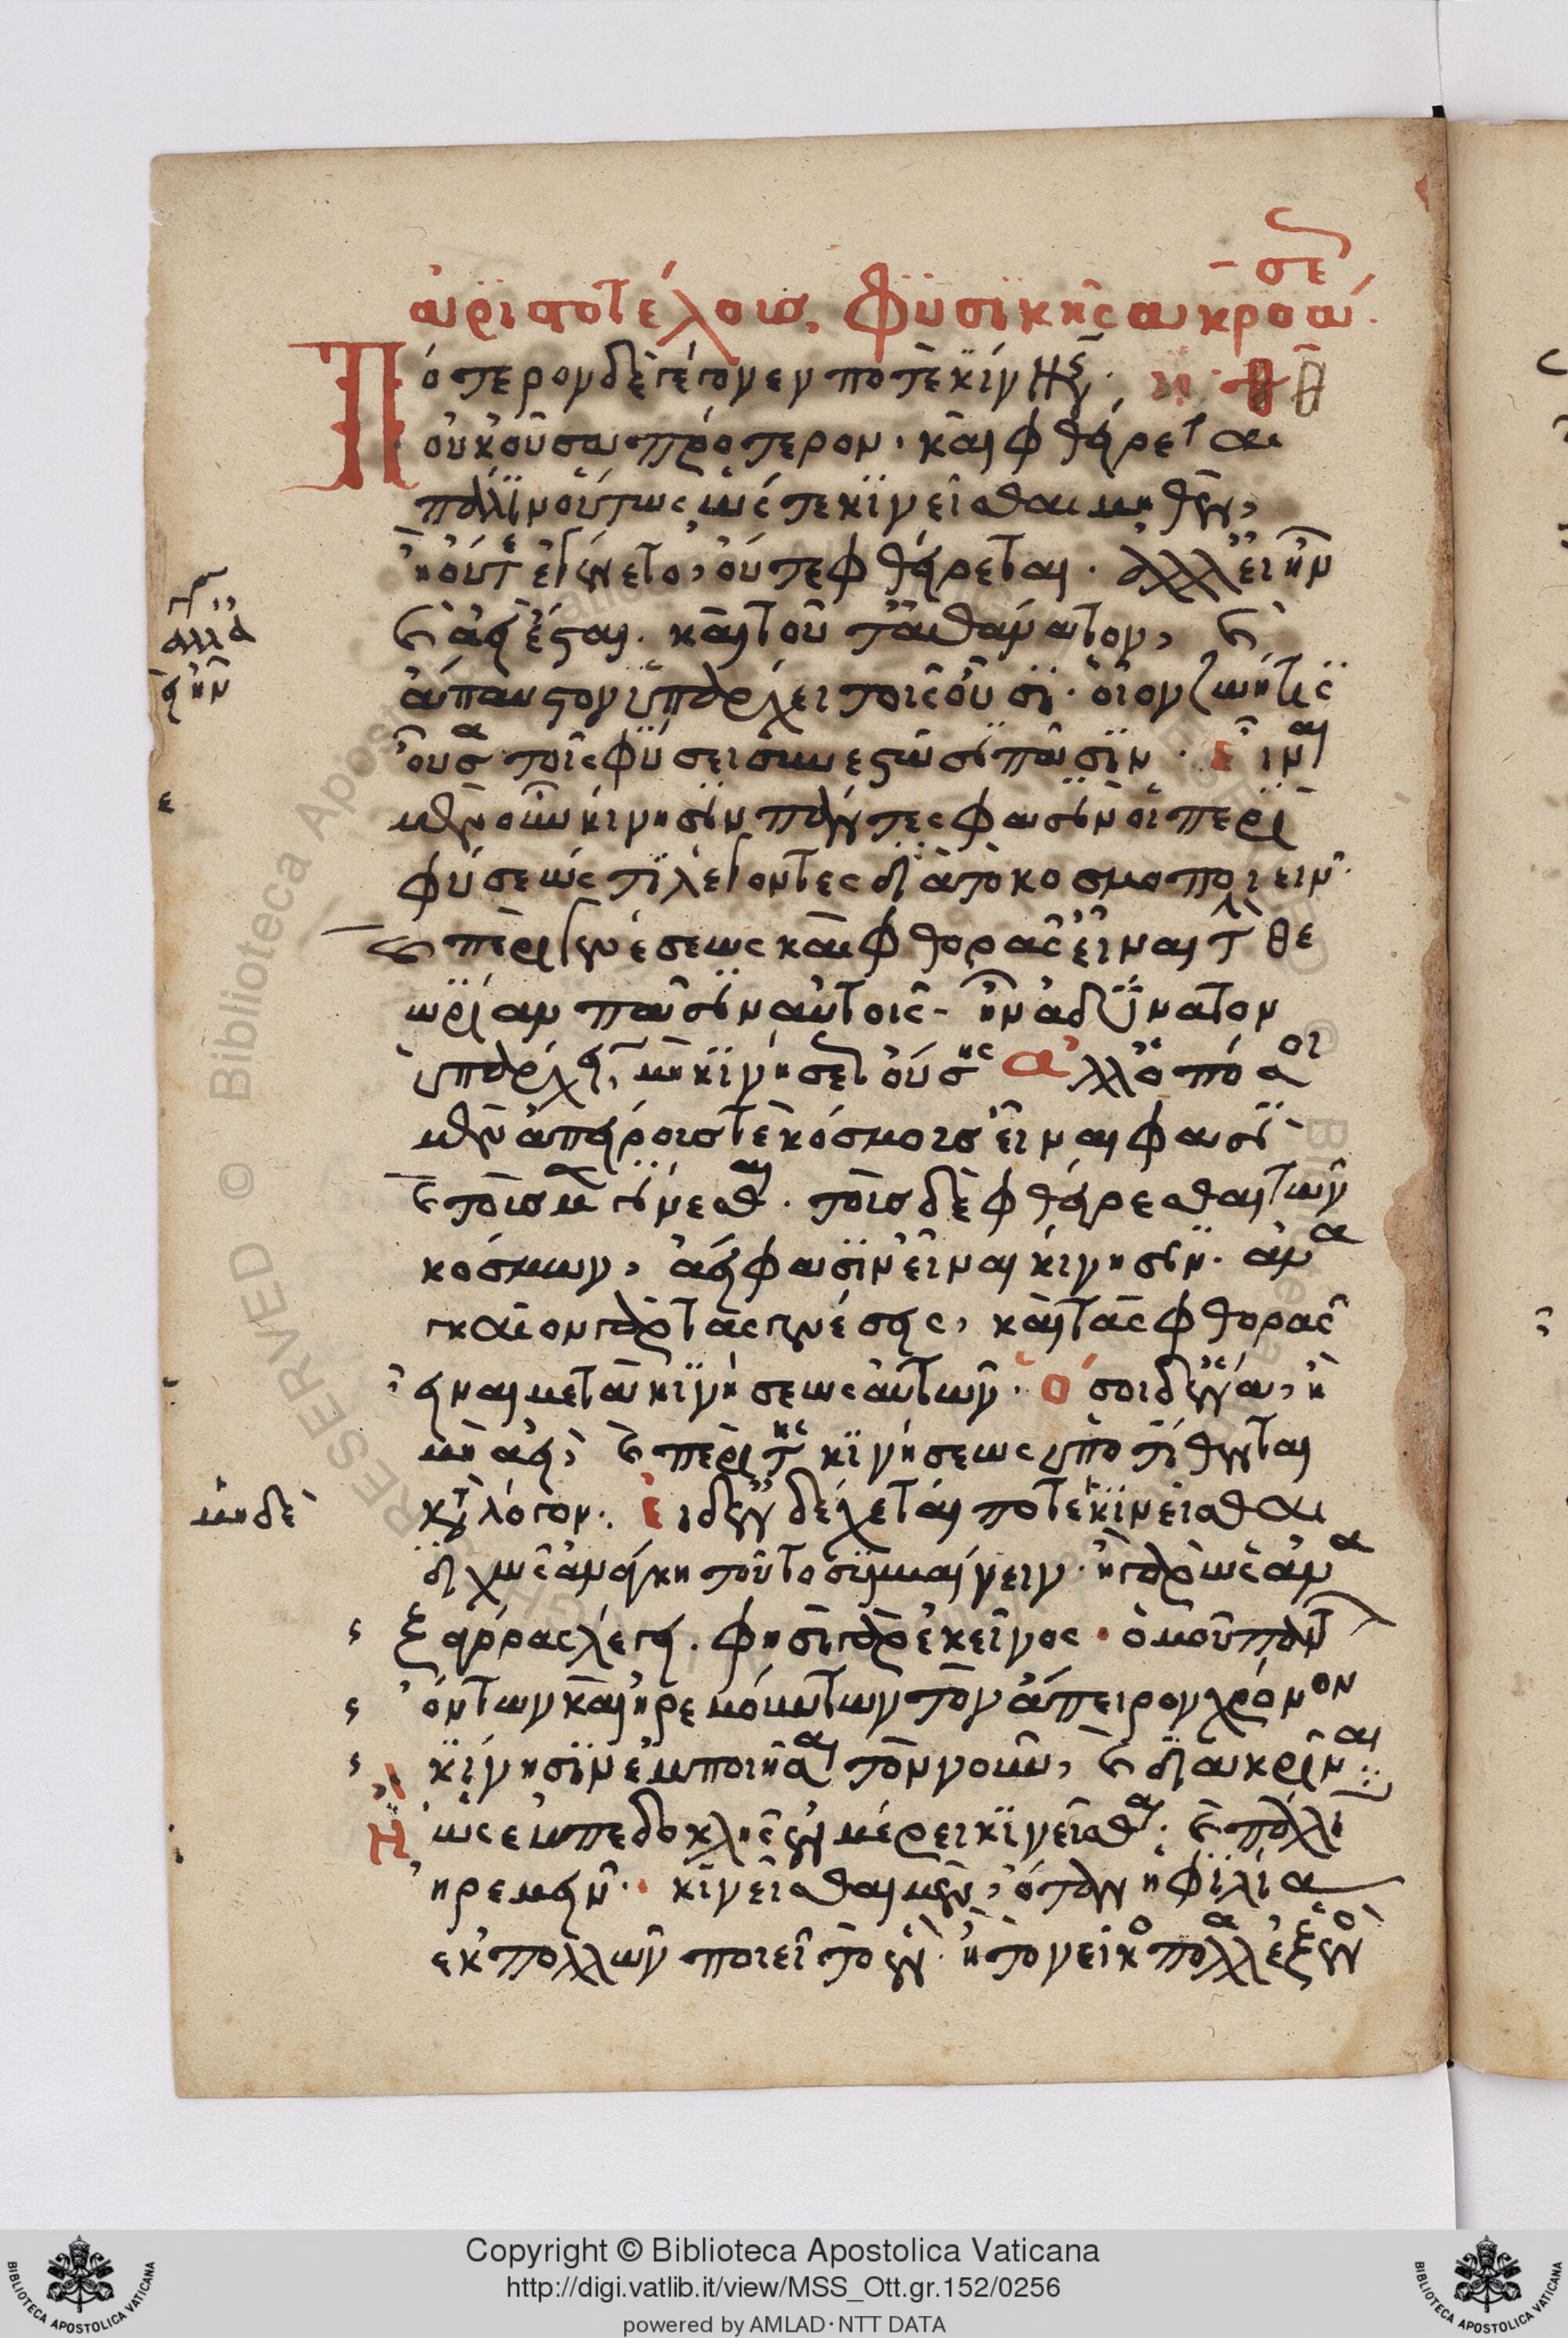 ἀριστοτέλους, φυσικῆς ἀκροάσε
Πότερον δὲ γέγονεν ποτὲ κίνησις
οὐκ οὖσα πρότερον· καὶ φθείρεται
πάλιν οὕτως ὥστε κινεῖσθαι μηθέν,
ἢ οὔτε ἐγένετο, οὔτε φθείρεται. ἀλλ' ἀεὶ ἦν
καὶ ἀεὶ ἔσται. καὶ τοῦτ' ἀθάνατον, καὶ
ἄπαυστον ὑπάρχει τοῖς οὖσι. οἷον ζωή τις
οὖσα τοῖς φύσει συνεστῶσι πᾶσιν. εἶναι
μὲν οὖν κίνησιν πάντες φασὶν οἱ περὶ
φύσεώς τι λέγοντες διὰ τὸ κοσμοποιεῖν
καὶ περὶ γενέσεως καὶ φθορᾶς εἶναι τὴν θε
ωρίαν πᾶσιν αὐτοῖς. ἣν ἀδύνατον
ὑπάρχειν, μὴ κινήσεως οὔσης ἀλλ' ὁπόσοι
μὲν ἀπείρους τε κόσμους εἶναι φασὶ
καὶ τοὺς μὲν γίνεσθαι. τοὺς δὲ φθείρεσθαι τῶν
κόσμων, ἀεί φασιν εἶναι κίνησιν. ἀναγ
καῖον γὰρ τὰς γενέσεις, καὶ τὰς φθορὰς
εἶναι μετὰ κινήσεως αὐτῶν. ὅσοι δ' ἕνα, ἢ
μὴ ἀεὶ, καὶ περὶ τῆς κινήσεως ὑποτίθενται
κατὰ λόγον. εἰ δ' ἐνδέχεται ποτὲ κινεῖσθαι
διχῶς ἀνάγκη τοῦτο συμβαίνειν. ἢ γὰρ ὡς ἀνα
ξαγόρας λέγει. φησὶ γὰρ ἐκεῖνος· ὁμοῦ πάντ
ὄντων καὶ ἠρεμούντων τὸν ἄπειρον χρόνον
κίνησιν ἐμποιῆσαι τὸν νοῦν, καὶ διακρῖναι
ἢ ὡς ἐμπεδοκλῆς ἐν μέρει κινεῖσθαι. καὶ πάλιν
ἠρεμεῖν. κινεῖσθαι μὲν, ὅταν ἡ φιλία
ἐκ πολλῶν ποιεῖ τὸ ἕν. ἢ τὸ νεῖκος πολλὰ ἐξ ἑνὸς
ἀλλὰ
ἀεὶ ἦν
μηδὲ
BIBLIOTECA APOSTOLICA VATICANA
Copyright © Biblioteca Apostolica Vaticana
http://digi.vatlib.it/view/MSS_Ott.gr.152/0256
powered by AMLAD·NTT DATA
BIBLIOTECA APOSTOLICA VATICANA